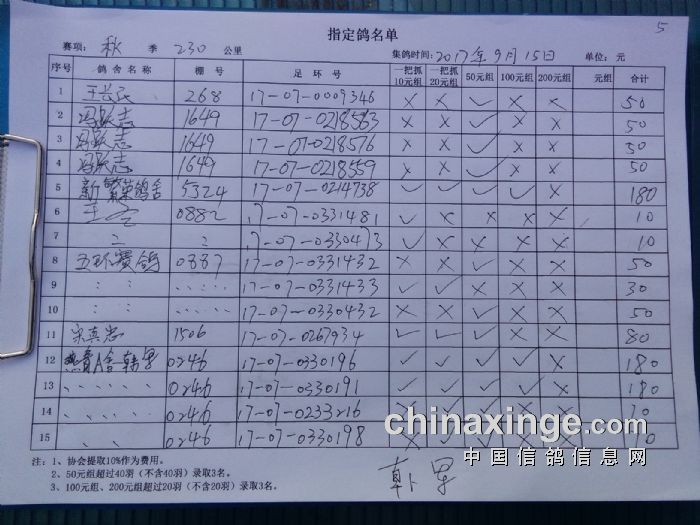 5
指定鸽名单
赛项: 秋 季 230 公里 集鸽时间: 2017年9月15日 单位: 元
序号 鸽舍名称 棚号 足环号 一把抓10元组 一把抓20元组 50元组 100元组 200元组 元组 合计
1 王长民 268 17-07-0009346 × × ✓ × × 50
2 冯跃志 1649 17-07-0218563 × × ✓ × × 50
3 冯跃志 1649 17-07-0218576 × × ✓ × × 50
4 冯跃志 1649 17-07-0218559 × × ✓ × × 50
5 新繁荣鸽舍 5324 17-07-0214738 ✓ ✓ ✓ ✓ × 180
6 0882 17-07-0331481 ✓ × × × × 10
7 17-07-0330473 ✓ × × × × 10
8 五环赛鸽 0887 17-07-0331432 × × ✓ × × 50
9 17-07-0331433 ✓ ✓ × × × 30
10 17-07-0330432 × × ✓ × × 50
11 宋真忠 1506 17-07-0267934 ✓ ✓ ✓ × × 80
12 0246 17-07-0330196 ✓ ✓ ✓ ✓ × 180
13 0246 17-07-0330191 ✓ ✓ ✓ ✓ × 180
14 0246 17-07-0233216
15 0246 17-07-0330198
注: 1、协会提取10%作为费用。
2、50元组超过40羽（不含40羽）录取3名。
3、100元组、200元组超过20羽（不含20羽）录取3名。
chinaxinge.com
中国信鸽信息网